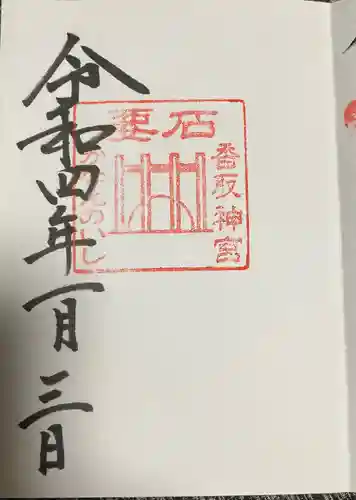 要石
香取神宮
かなめいし
令和四年一月三日